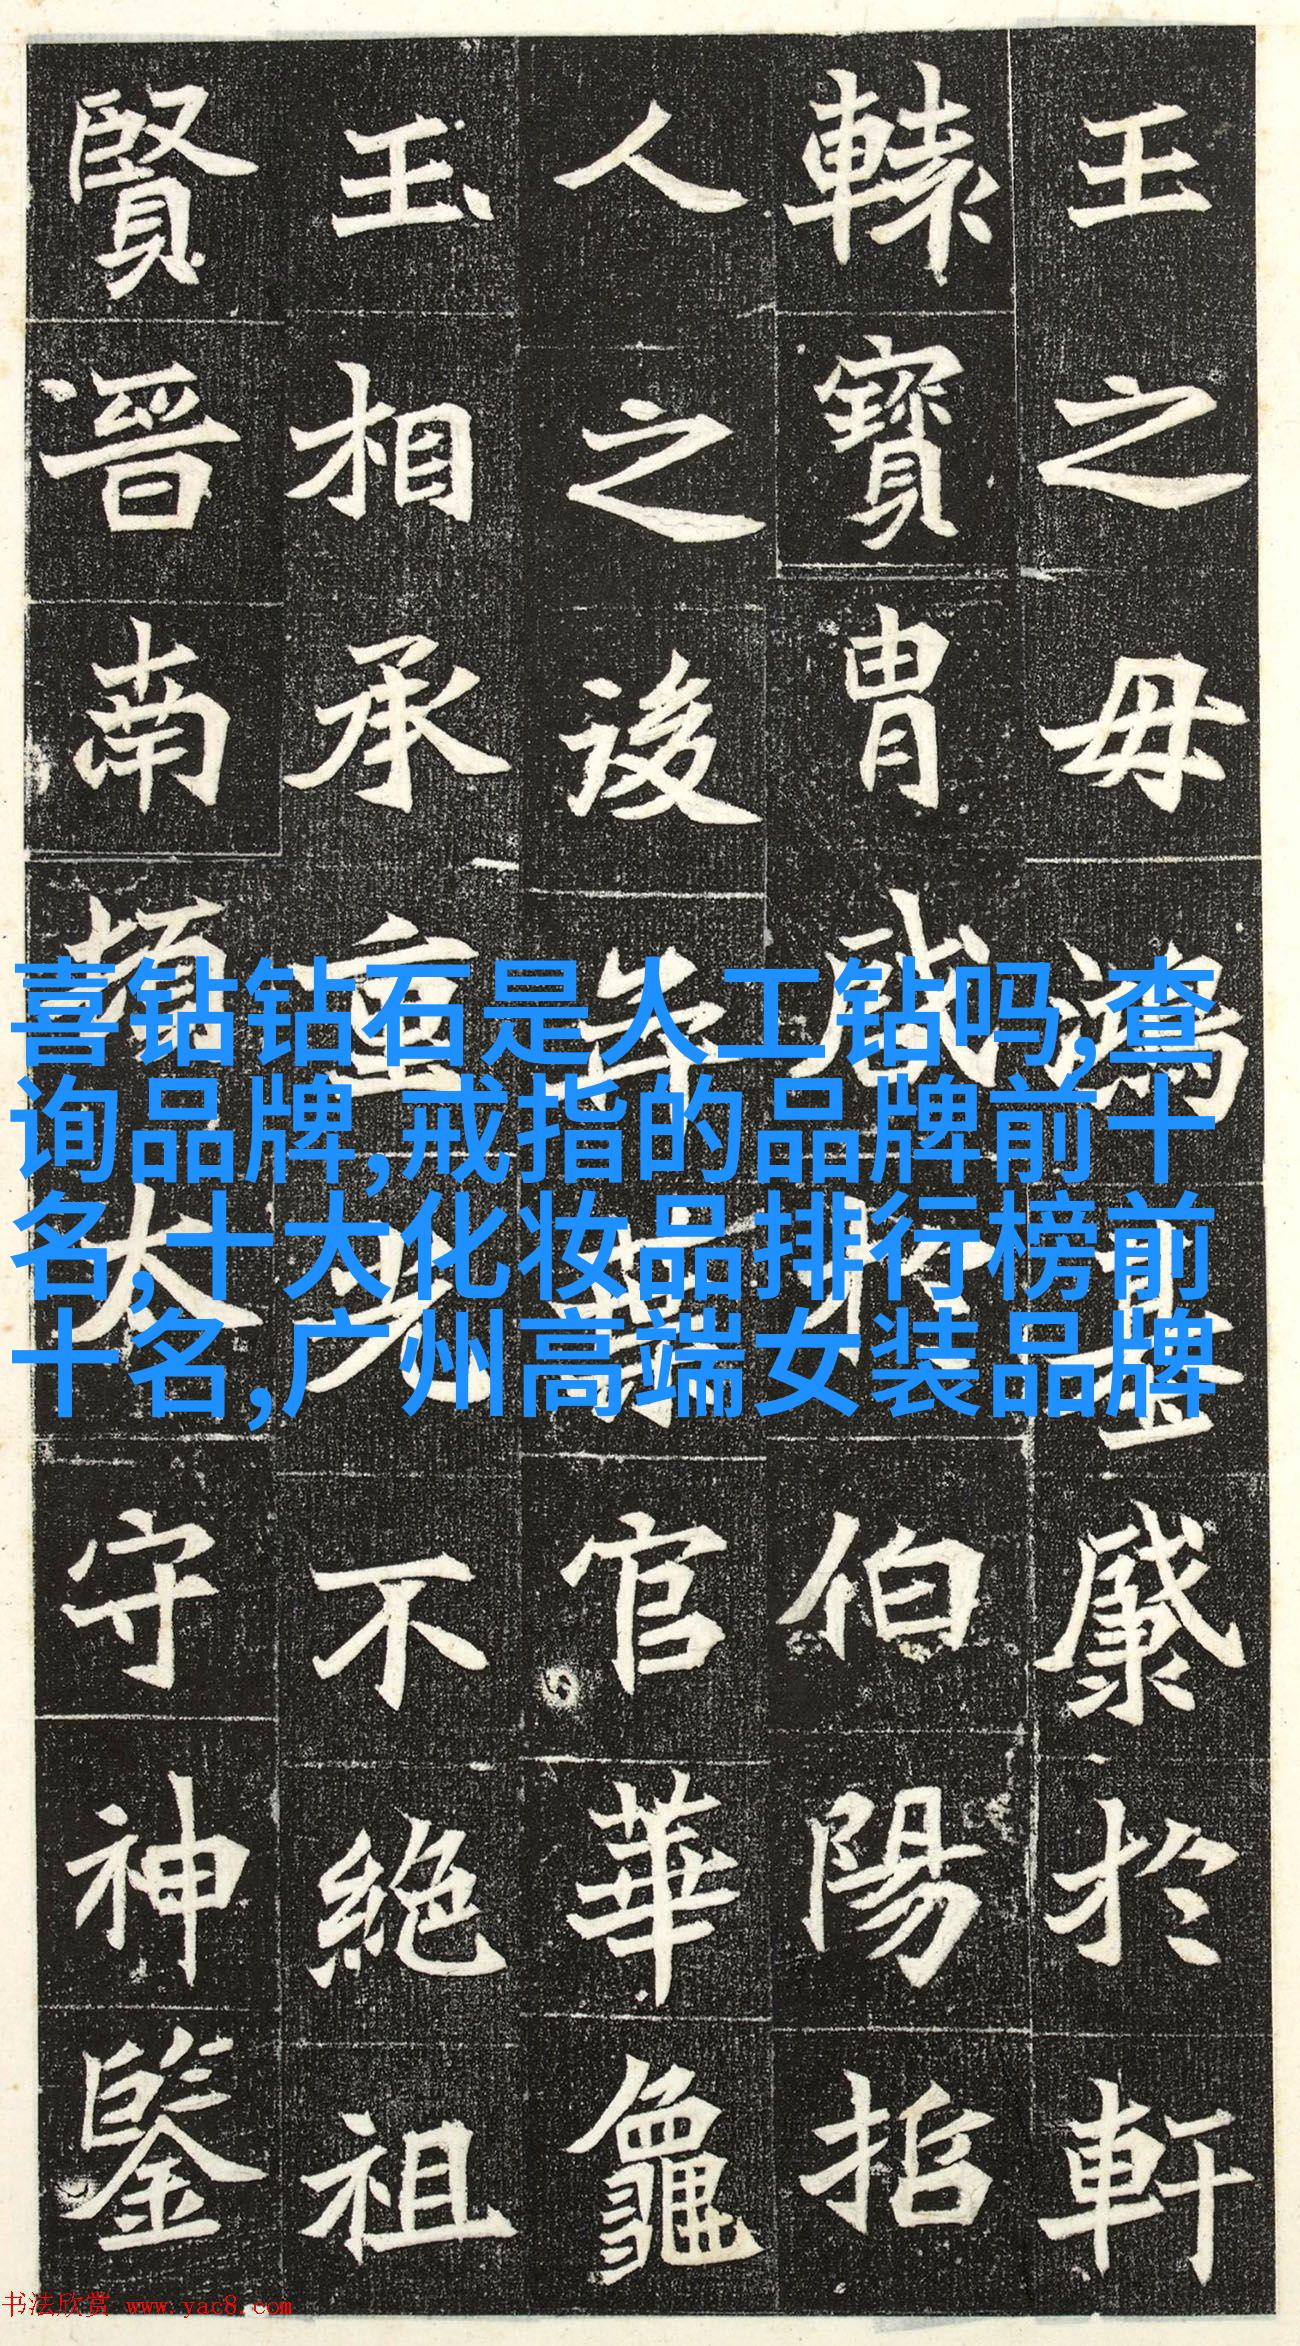 王之毋鴻基於軒
轅寶胄於伯陽指
人之後官華龜
玉相承重光不絕祖
賢晉南頓太守神鑒
喜钻钻石是人工钻吗,查
询品牌,戒指的品牌前十
名,十大化妆品排行榜前
十名,广州高端女装品牌
书法欣赏 www.yac8.com